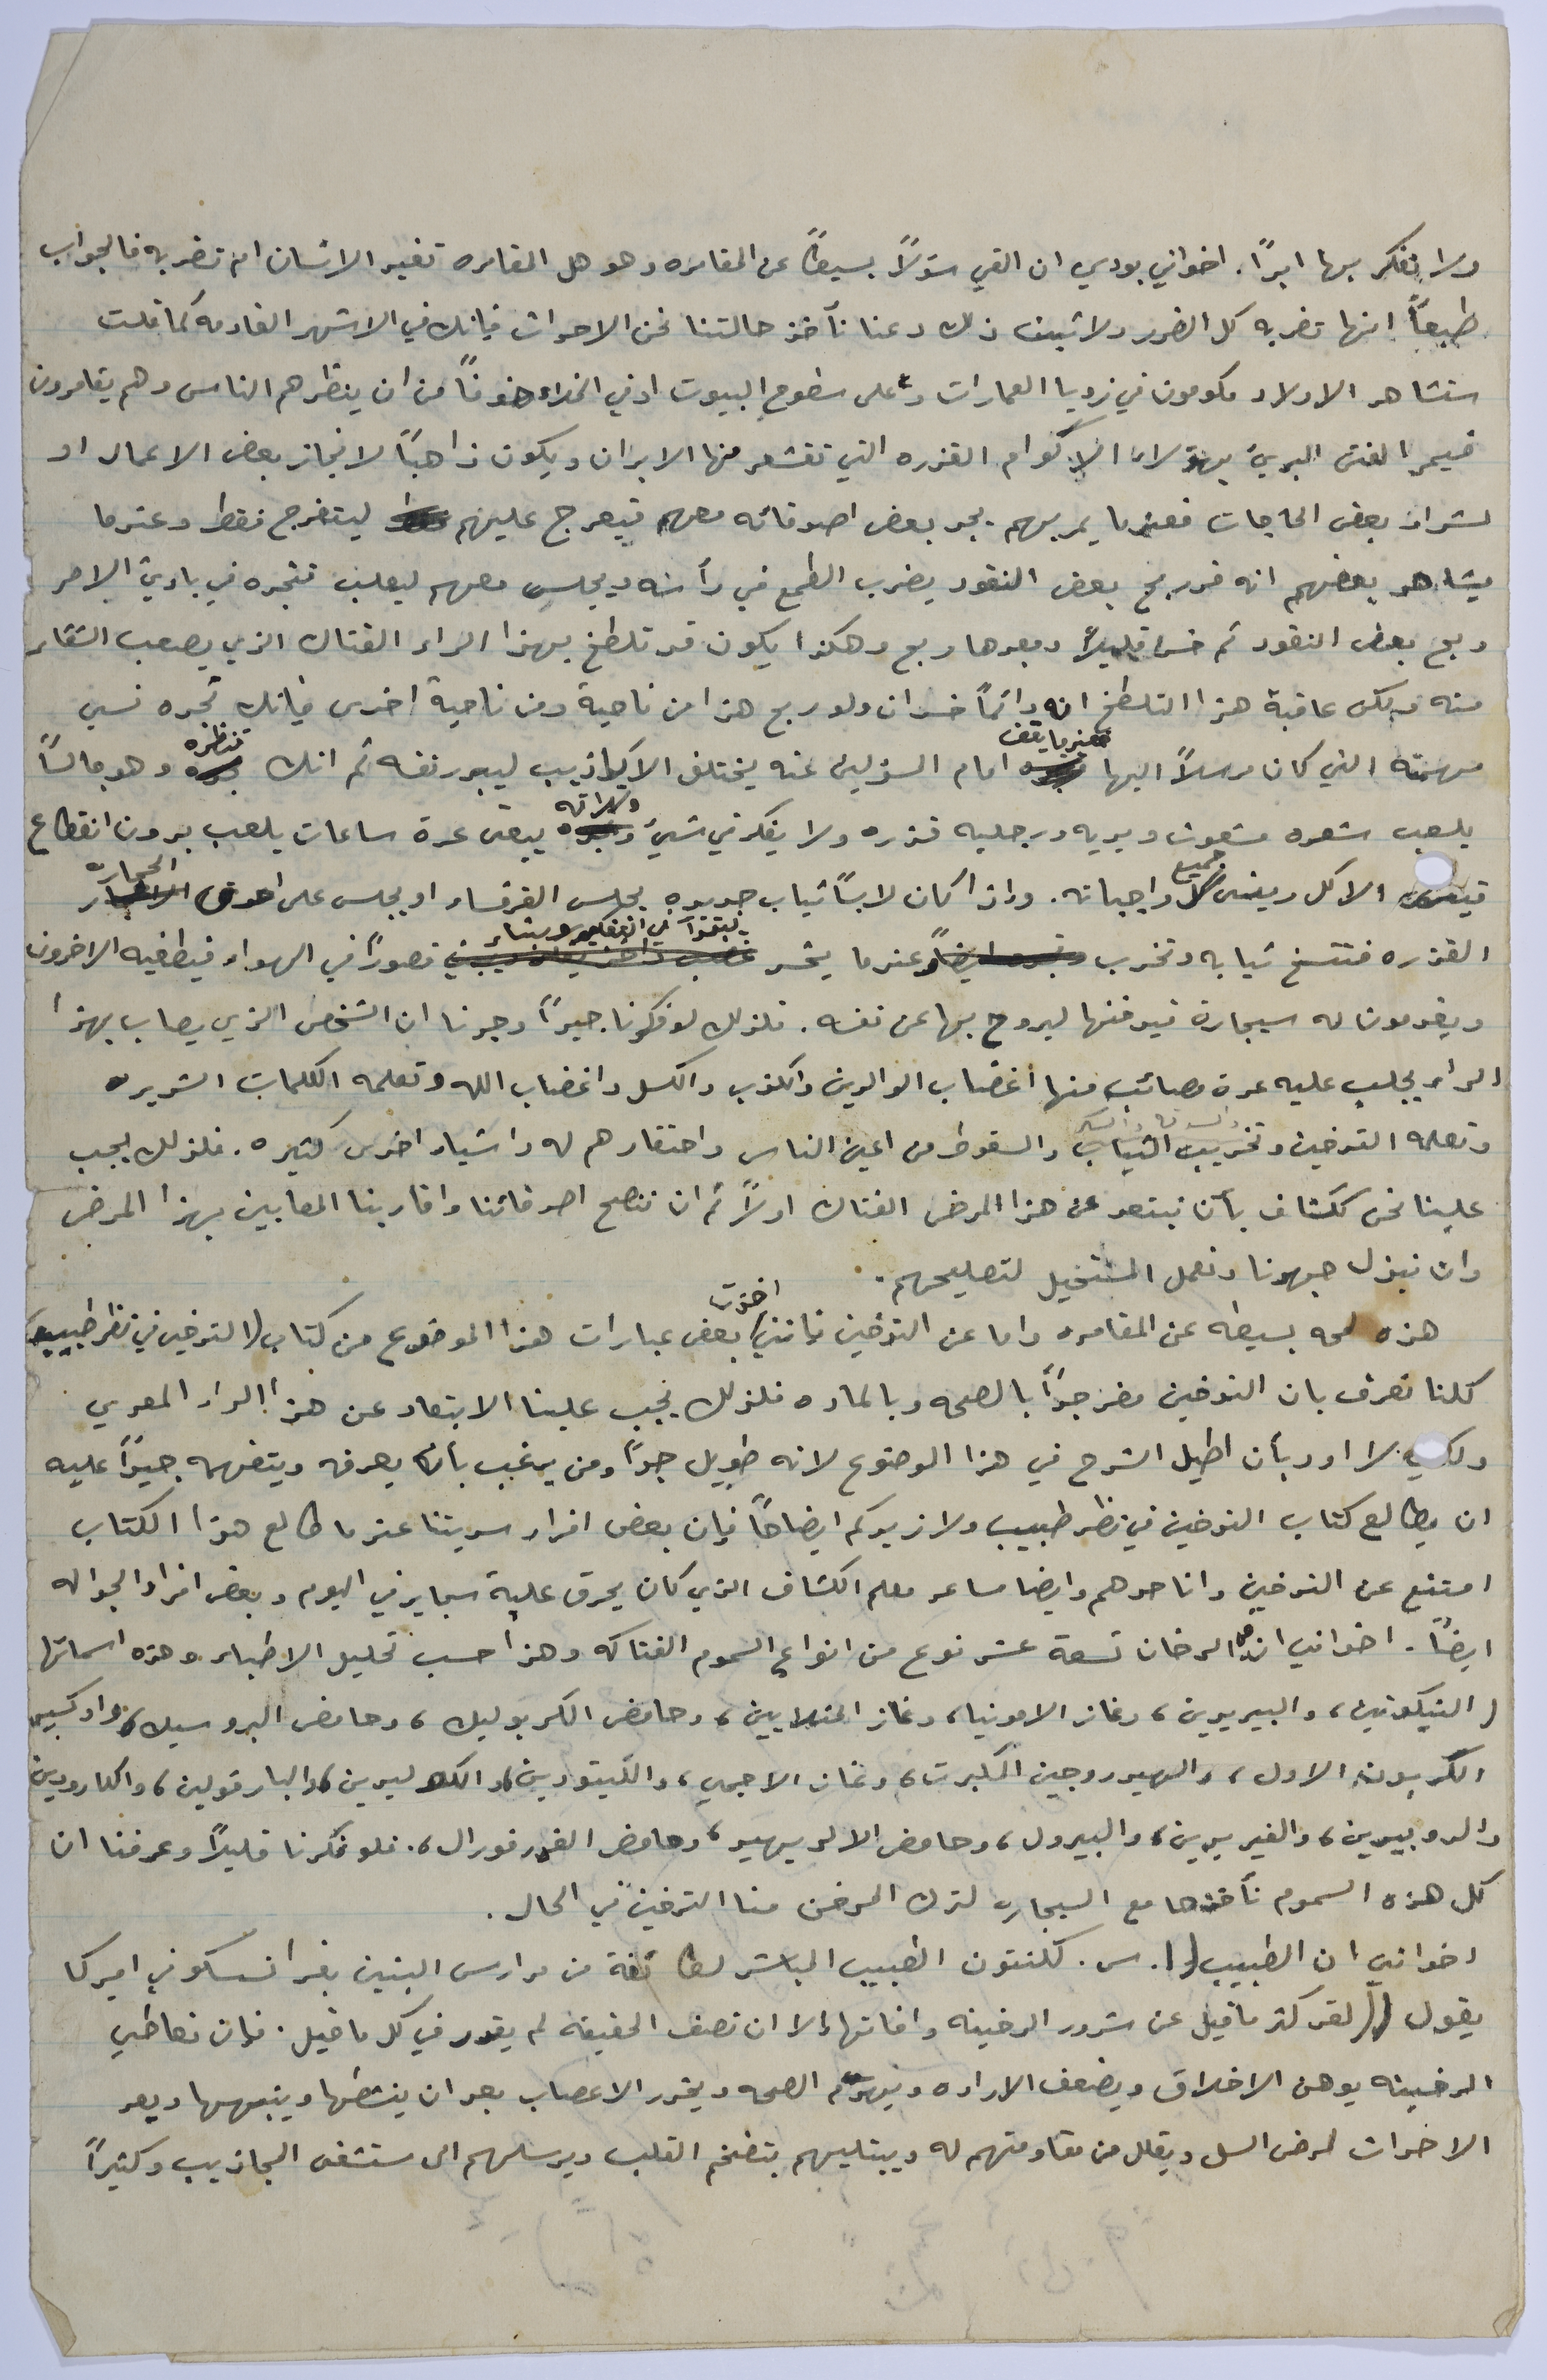 ولا نفكر بها ابداً. اخواني بودي ان القي سؤلاً بسيطاً عن المقامره وهو هل المقامره تفيد الانسان ام تضر به فالجواب
طبعاً انها تضر به كل الضرر ولاثبات ذلك دعنا نأخذ حالتنا نحن الاحداث فإنك في الاشهر القادمه كما قلت
ستشاهد الاولاد مكومون في زويا العمارات وعلى سطوح البيوت او في الخلاء خوفاً من ان ينظرهم الناس وهم يقامرون
فيمر الفتى البريئ بهؤلاء الاكوام القذره التي تقشعر منها الابدان ويكون ذاهباً لانجاز بعض الاعمال او
لشراء بعض الحاجات فعندما يمر بهم يجد بعض اصدقائه معهم فيعرج عليهم ليتفرج فقط وعندما
يشاهد بعضهم انه قد ربح بعض النقود يضرب الطمع في رأسه ويجلس معهم ليلعب فتجده في بادئ الامر
ربح بعض النقود ثم خسر قليلاً وبعدها ربح وهكذا يكون قد تلطخ بهذا الداء الفتاك الذي يصعب الشفاء
منه ولكن عاقبة هذا التلطخ انه دائماً خسران ولو ربح هذا من ناحية ومن ناحية اخرى فإنك تجده نسي
مهمته التي كان مرسلاً اليها عندما يقف امام المسؤلين عنه يختلق الاكاذيب ليبرر نفسه ثم انك تنظره وهو جالساً
يلعب شعره مشعوث ويديه ورجليه قذره ولا يفكر في شيئ ولذاته يبقى عدة ساعات يلعب بدون انقطاع
الاكل وينسى جميع واجباته. واذا كان لابساً ثياب جديده يجلس القرفساء او يجلس على احدى الحجاره
القذره فتتسخ ثيابه وتخرب وعندما يخسر وبناء قصوراً في الهواء فيطفيه الاخرون
ويقدمون له سيجارة فيدخنها ليروح بها عن نفسه. فلذلك لو فكرنا جيداً وجدنا ان الشخص الذي يصاب بهذا
الداء يجلب عليه عدة مصائب منها اغضاب الوالدين والكذب والكسل واغضاب الله وتعلمه الكلمات الشريره
وتعلمه التدخين وتخريب الثياب والسقوط من اعين الناس واحتقارهم له واشياء اخرى كثيره. فلذلك يجب
علينا نحن ككشاف بأن نبتعد عن هذا المرض الفتاك اولاً ثم ان ننصح اصدقائنا واقاربنا المصابين بهذا المرض
وان نبذل جهدنا ونعمل المستحيل لتصليحهم.
هذه لمحه بسيطه عن المقامره واما عن التدخين فانني اخذت بعض عبارات هذا الموضوع من كتاب (التدخين في نظر طبيب)
كلنا نعرف بان التدخين مضر جداً بالصحه وبالماده فلذلك يجب علينا الابتعاد عن هذا الداء المعدي
ولكني لا اود بأن اطيل الشرح في هذا الوضوع لانه طويل جداً ومن يرغب بأن يعرفه ويتفهمه جيداً عليه
ان يطالع كتاب التدخين في نظر طبيب ولازيدكم ايضاحاً فإن بعض افراد سريتنا عندما طالع هذا الكتاب
امتنع عن التدخين وانا احدهم وايضا مساعد معلم الكشاف الذي كان يحرق علبة سجاير في اليوم وبعض افراد الجواله
ايضاً. اخواني ان في الدخان تسعة عشر نوع من انواع السموم الفتاكه وهذا حسب تحليل الاطباء وهذه اسمائها
(النيكوتين، والبيريدين، وغاز الامونيا، وغاز المثلايين، وحامض الكربوليك، وحامض البروسيك، واوكسيد
الكربون الاول، والهيدروجين المكبرت، وغاز الاجمي، واللتيودين، والكولیدین، والبارفولين، والكاروديين
والروبيدين، والفيريدين، والبيرول، وحامض الالديهيد، وحامض الفورفورال،. فلو فكرنا قليلاً وعرفنا ان
كل هذه السموم نأخذها مع السيجاره لترك المدخن منا التدخين في الحال.
اخواني ان الطبيب (ا. س. كلنتون الطبيب المباشر لطائفة من مدارس البنين بفرانسسكو في اميركا
يقول )) لقد كثر ماقيل عن شرور الدخينه وافاتها إلا ان نصف الحقيقه لم يقدر في كل ماقيل. فإن تعاطي
الدخينه يوهن الاخلاق ويضعف الاراده ويهدم الصحه ويخدر الاعصاب بعد ان ينشطها وينبهها ويعد
الاحداث لمرض السل ويقلل من مقاومتهم له ويبتليهم بتضخم القلب ويرسلهم الى مستشفى المجاذيب وكثيراً